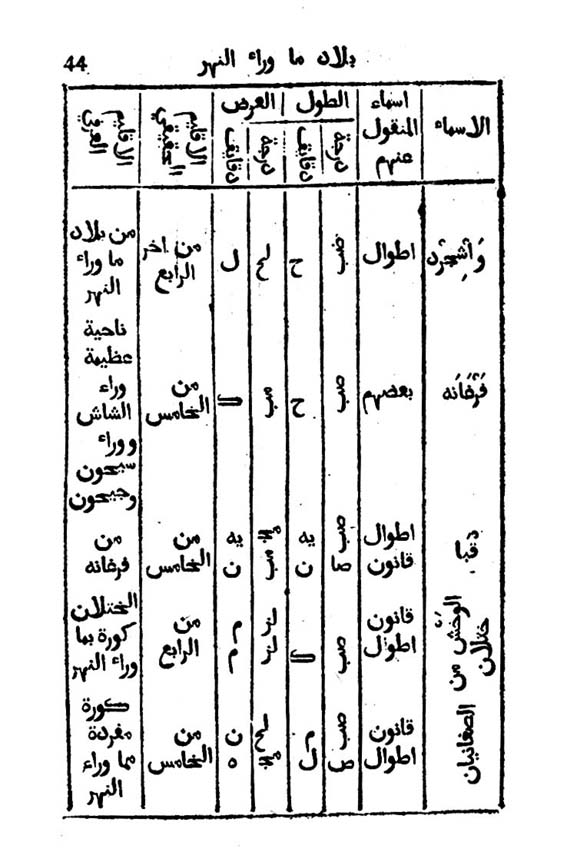 44
بلاد ما وراء النهر
الاسماء
اسماء
المنقول
عنهم
الطول
درجة
دقايق
العرض
درجة
دقايق
الاقليم
الحقيقي
الاقليم
العرفي
وَاشْجِرْد
اطوال
ح
ل
من اخر
الرابع
من بلاد
ما وراء
النهر
فَرْغَانَه
بعضهم
صب
ح
مب
ك
من
الخامس
ناحية
عظيمة
وراء
الشاش
ووراء
سيحون
وجيحون
اطوال
قانون
صب
يه
ن
مب
يه
ن
من
الخامس
من
فرغانه
الوخش من
ختلان
قانون
اطوال
صب
ك
من
الرابع
الختلان
كورة بما
وراء النهر
الصغانيان
قانون
اطوال
صب
م
ل
ن
ه
من
الخامس
كورة
مفردة
مما وراء
النهر